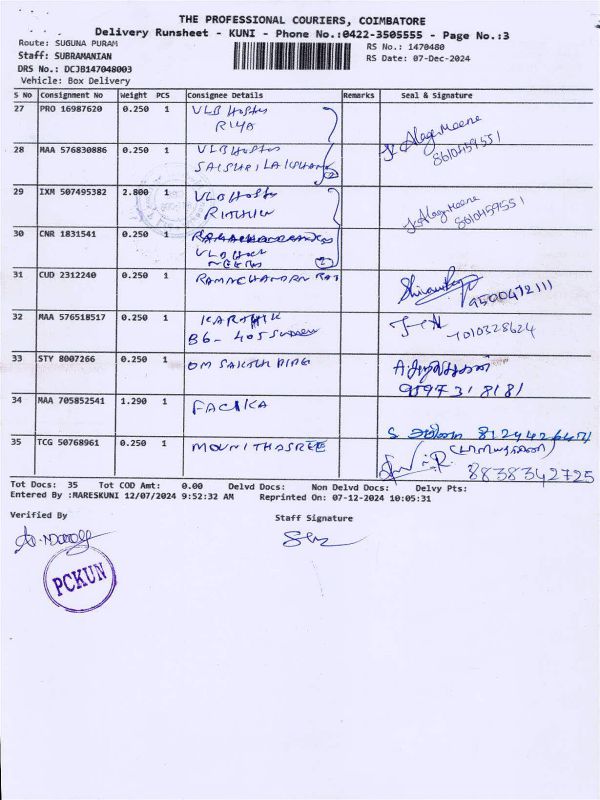 THE PROFESSIONAL COURIERS, COIMBATORE
Delivery Runsheet - KUNI - Phone No.:0422-3505555 - Page No.:3
Route: SUGUNA PURAM
RS No.: 1470480
Staff: SUBRAMANIAN
RS Date: 07-Dec-2024
DRS No.: DCJB147048003
Vehicle: Box Delivery
S No Consignment No Weight PCS Consignee Details Remarks Seal & Signature
27 PRO 16987620 0.250 1 VLB Hostes
RIYA
Alagu Meena
8610459551
28 MAA 576830886 0.250 1 VLB Hostes
29 IXM 507495382 2.800 1 VLB Hostes
Alagu Meena
8610459551
30 CNR 1831541 0.250 1
2
31 CUD 2312240 0.250 1 RAMACHANDRN RAJ
9500472111
32 MAA 576518517 0.250 1 KARTHIK
B6- 405
7010328624
33 STY 8007266 0.250 1 OM SAKTHI
95973 18181
34 MAA 705852541 1.290 1
35 TCG 50768961 0.250 1 MOUNITHASREE
8838342725
Tot Docs: 35 Tot COD Amt: 0.00 Delvd Docs: Non Delvd Docs: Delvy Pts:
Entered By :MARESKUNI 12/07/2024 9:52:32 AM Reprinted On: 07-12-2024 10:05:31
Verified By
Staff Signature
PCKUN